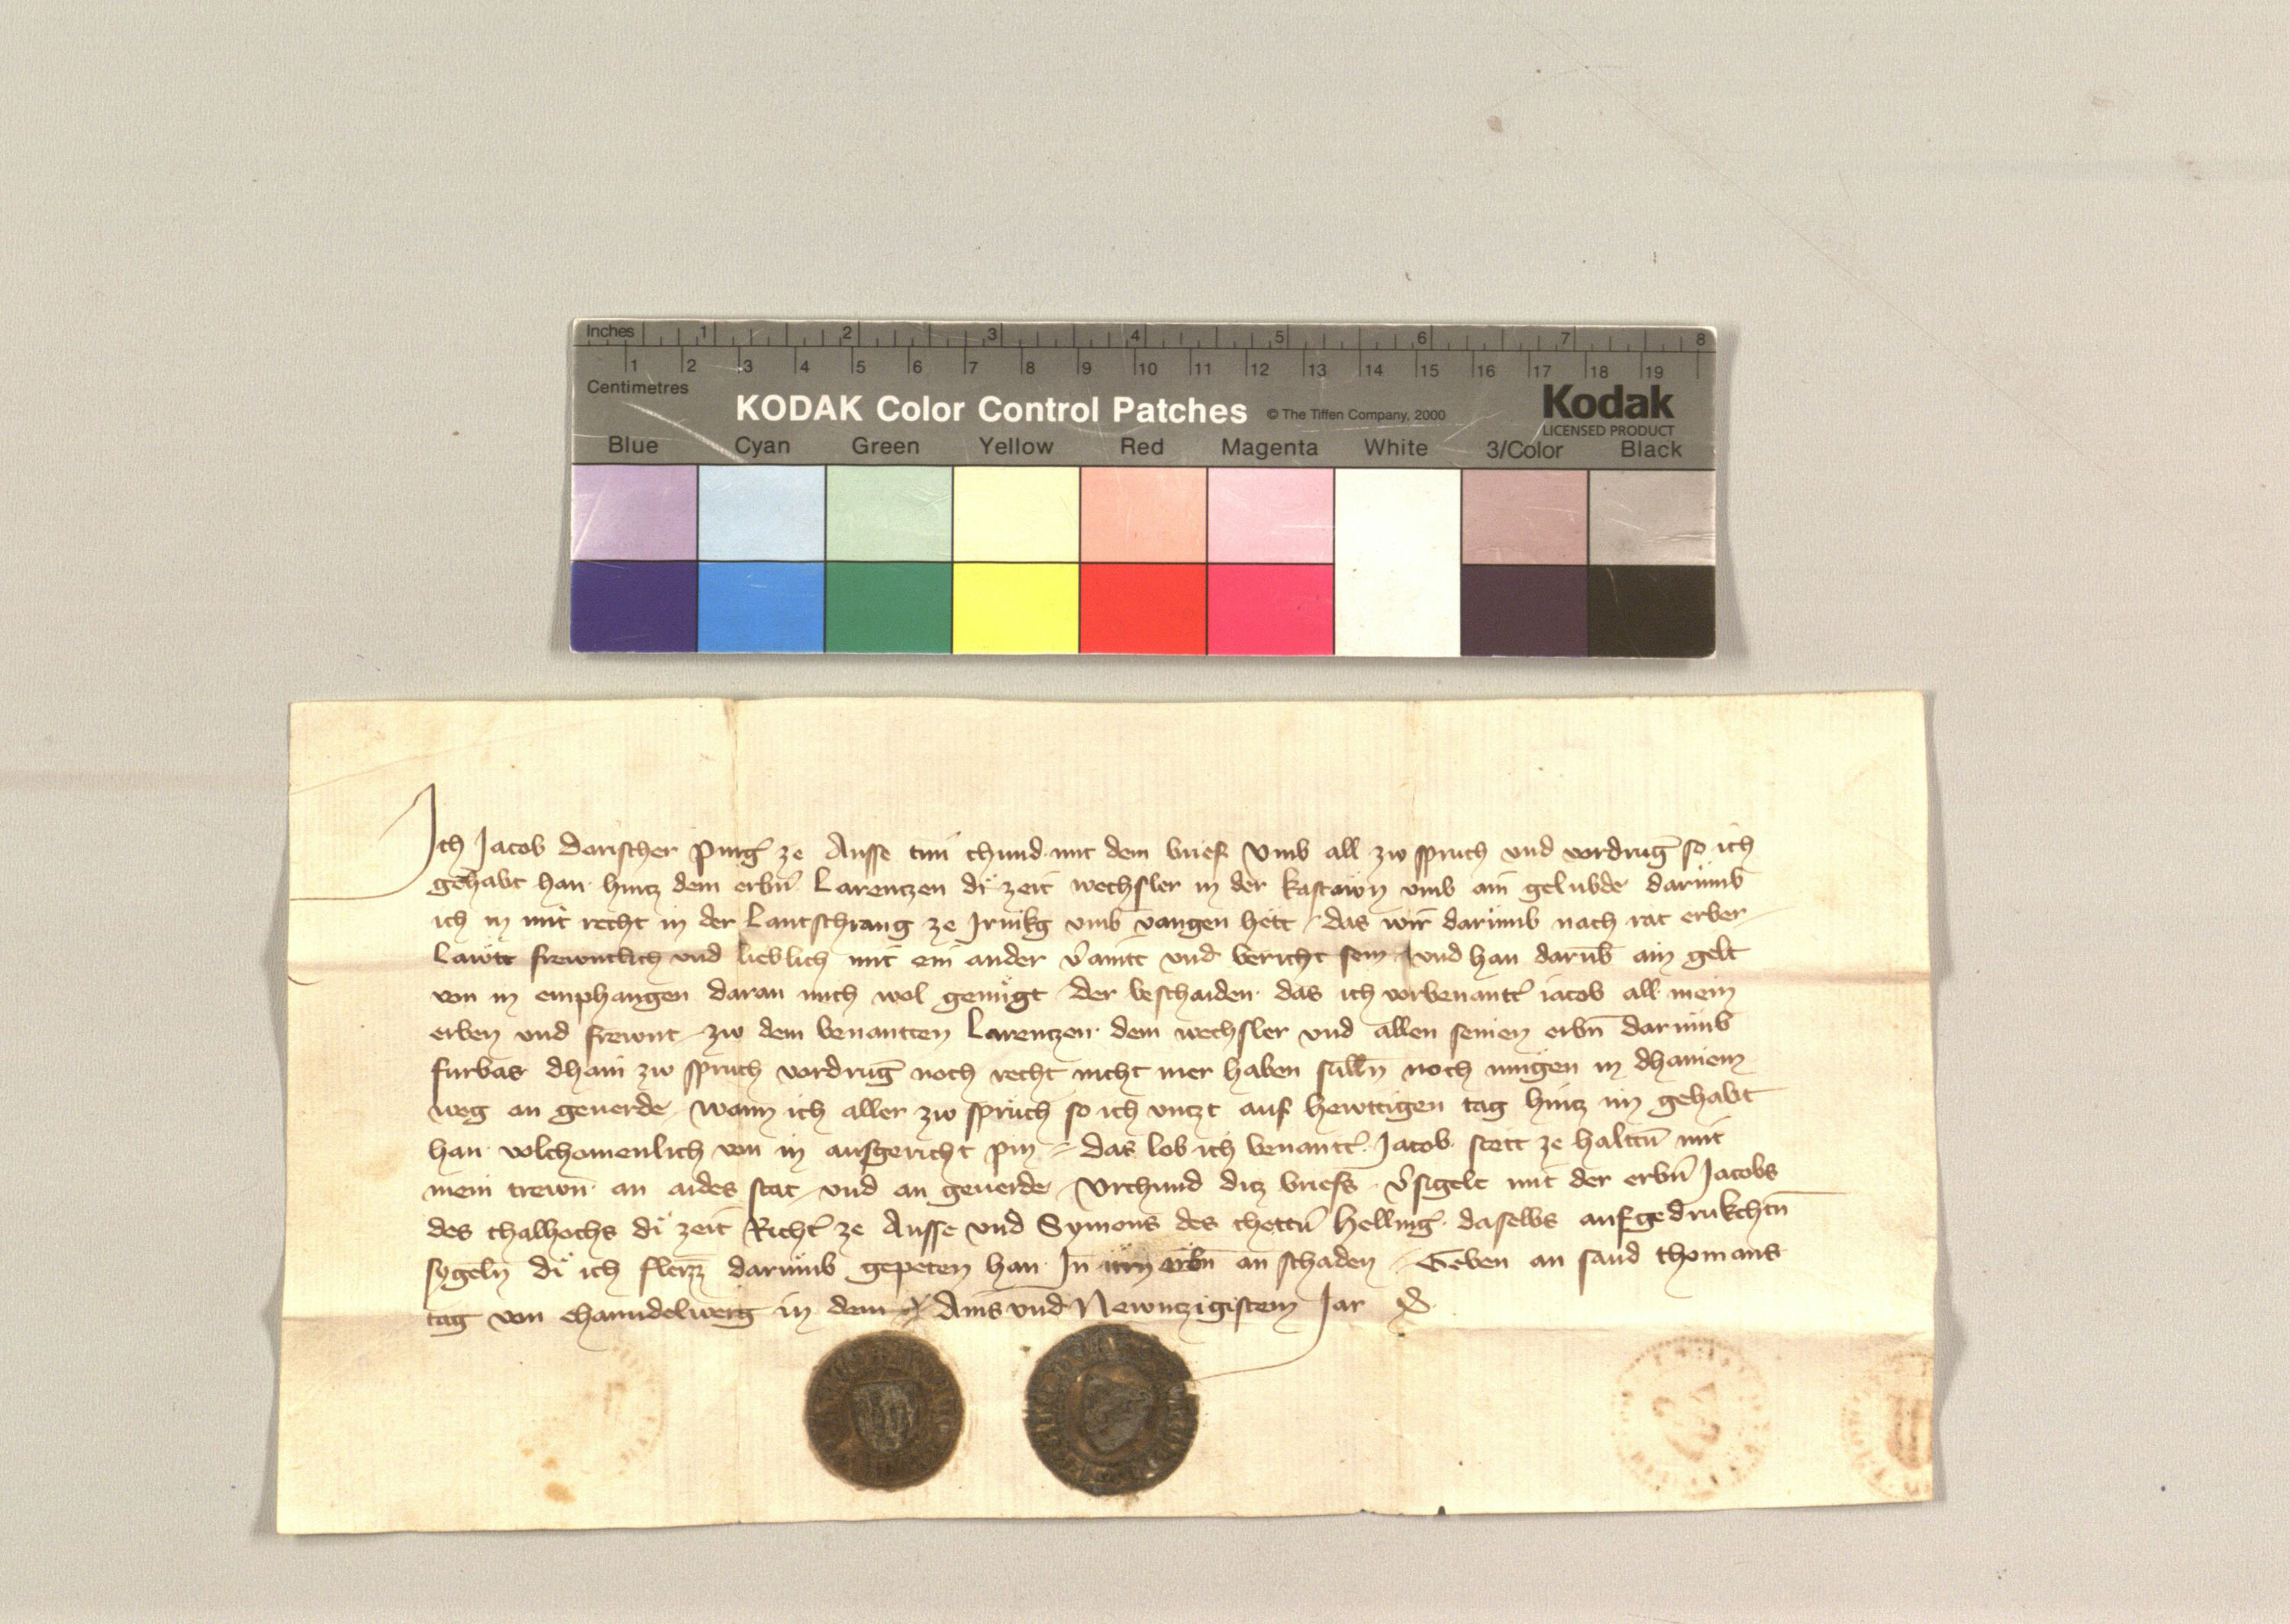 Inches 1 2 3 4 5 6 7 8
1 2 3 4 5 6 7 8 9 10 11 12 13 14 15 16 17 18 19
Centimetres
KODAK Color Control Patches © The Tiffen Company, 2000 Kodak
LICENSED PRODUCT
Blue Cyan Green Yellow Red Magenta White 3/Color Black
Ich Jacob Dorischer purg̃ ze Ausse tun chund mit dem brief vmb all zw spruch vnd vordrug̃ so ich
gehabt han hintz dem erbñ Larentzen di zeit wechsler in der kastawn vmb ain gelubde darumb
ich in mit recht in der Lantschrang ze vmb vangen hett das wir darumb nach rat erber
Lawtt frewntlich vnd lieblich mit ein ander v̄aintt vnd bericht sein vnd han darūb ain gelt
von in emphangen daran mich wol genugt der beschaiden das ich vorbenantt̄ iacob all mein
erben vnd frewnt zw dem benantten Larentzen dem wechsler vnd allen seinen erbn̄ darumb
furbas dhain zw spruch vordrug̃ noch recht nicht mer haben sulln̄ noch mugen in dhainem
weg an geuerde wann ich aller zw spruch so ich vntzt auf hewttigen tag hintz im gehabt
han volchomenlich von in ausgericht pin das lob ich benantt̄ Jacob stett ze halttn̄ mit
mein trewn an aides stat vnd an geuerde Vrchund ditz briefs v̄sigelt mit der erbn̄ Jacobs
des chalhochs di zeit Richt̄ ze Ausse vnd Symons des helling̃ daselbs aufgedrukchtn̄
sygeln di ich darumb gepeten han In erbn̄ an schaden Geben an sand thomans
tag von channdelwerg in dem Ains vnd Newntzigistem Jar